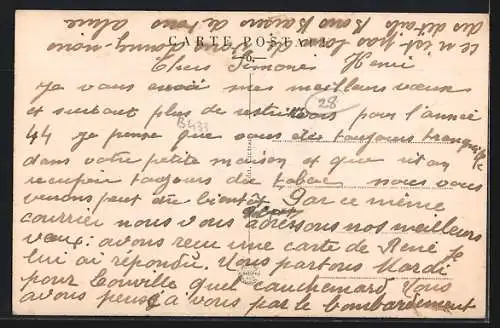 CARTE POSTALE
Chers Simone Henri
Je vous envoi mes meilleurs vœux
et surtout plus de restrictions pour l'année
44 je pense que vous êtes toujours tranquille
dans votre petite maison et que
toujours du tabac nous vous
verrons peut être bientôt Par ce même
courrier nous vous adressons nos meilleurs
vœux: avons recu une carte de René je
lui ai répondu. Nous partons Mardi
pour quel cauchemard, Nous
avons peur à vous par le bombardement
ce n'est pas long donnez-nous
des détails Bons Baisers de tous
28
B433